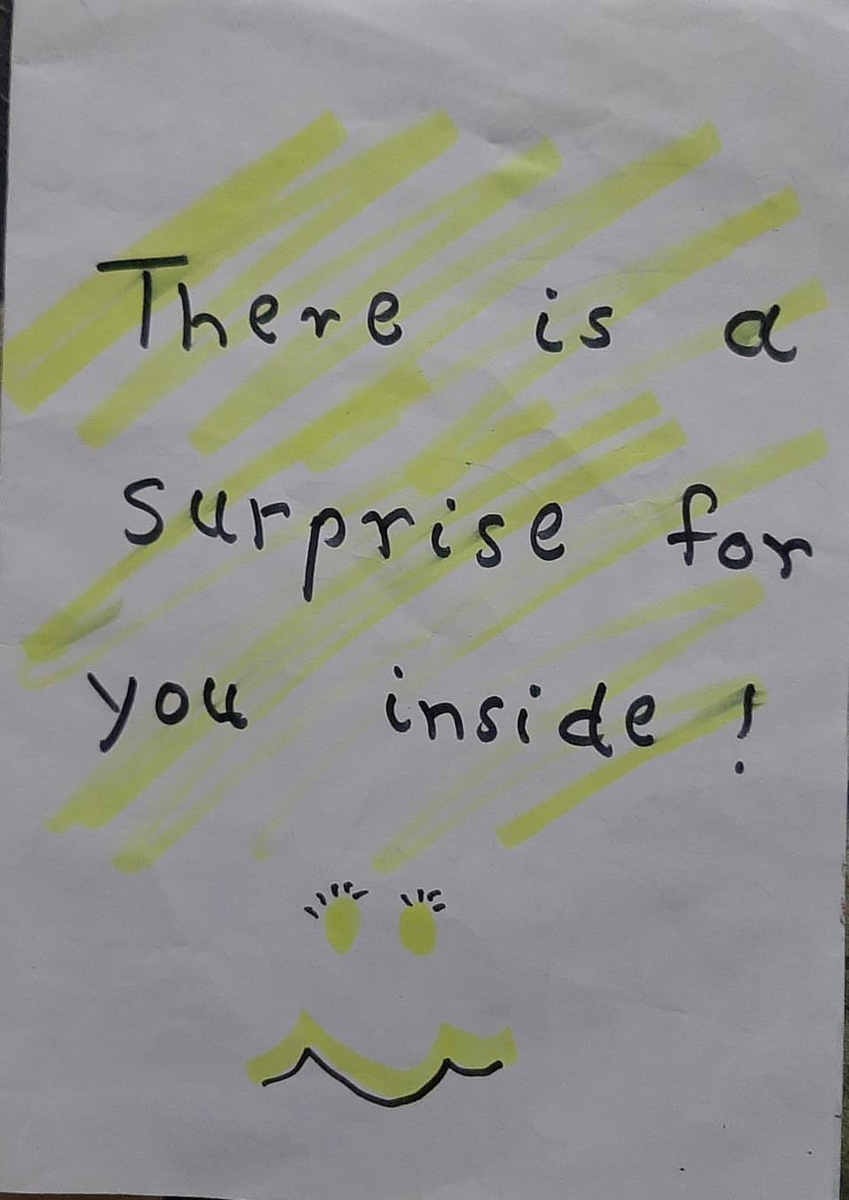 There is a
surprise for
you inside!